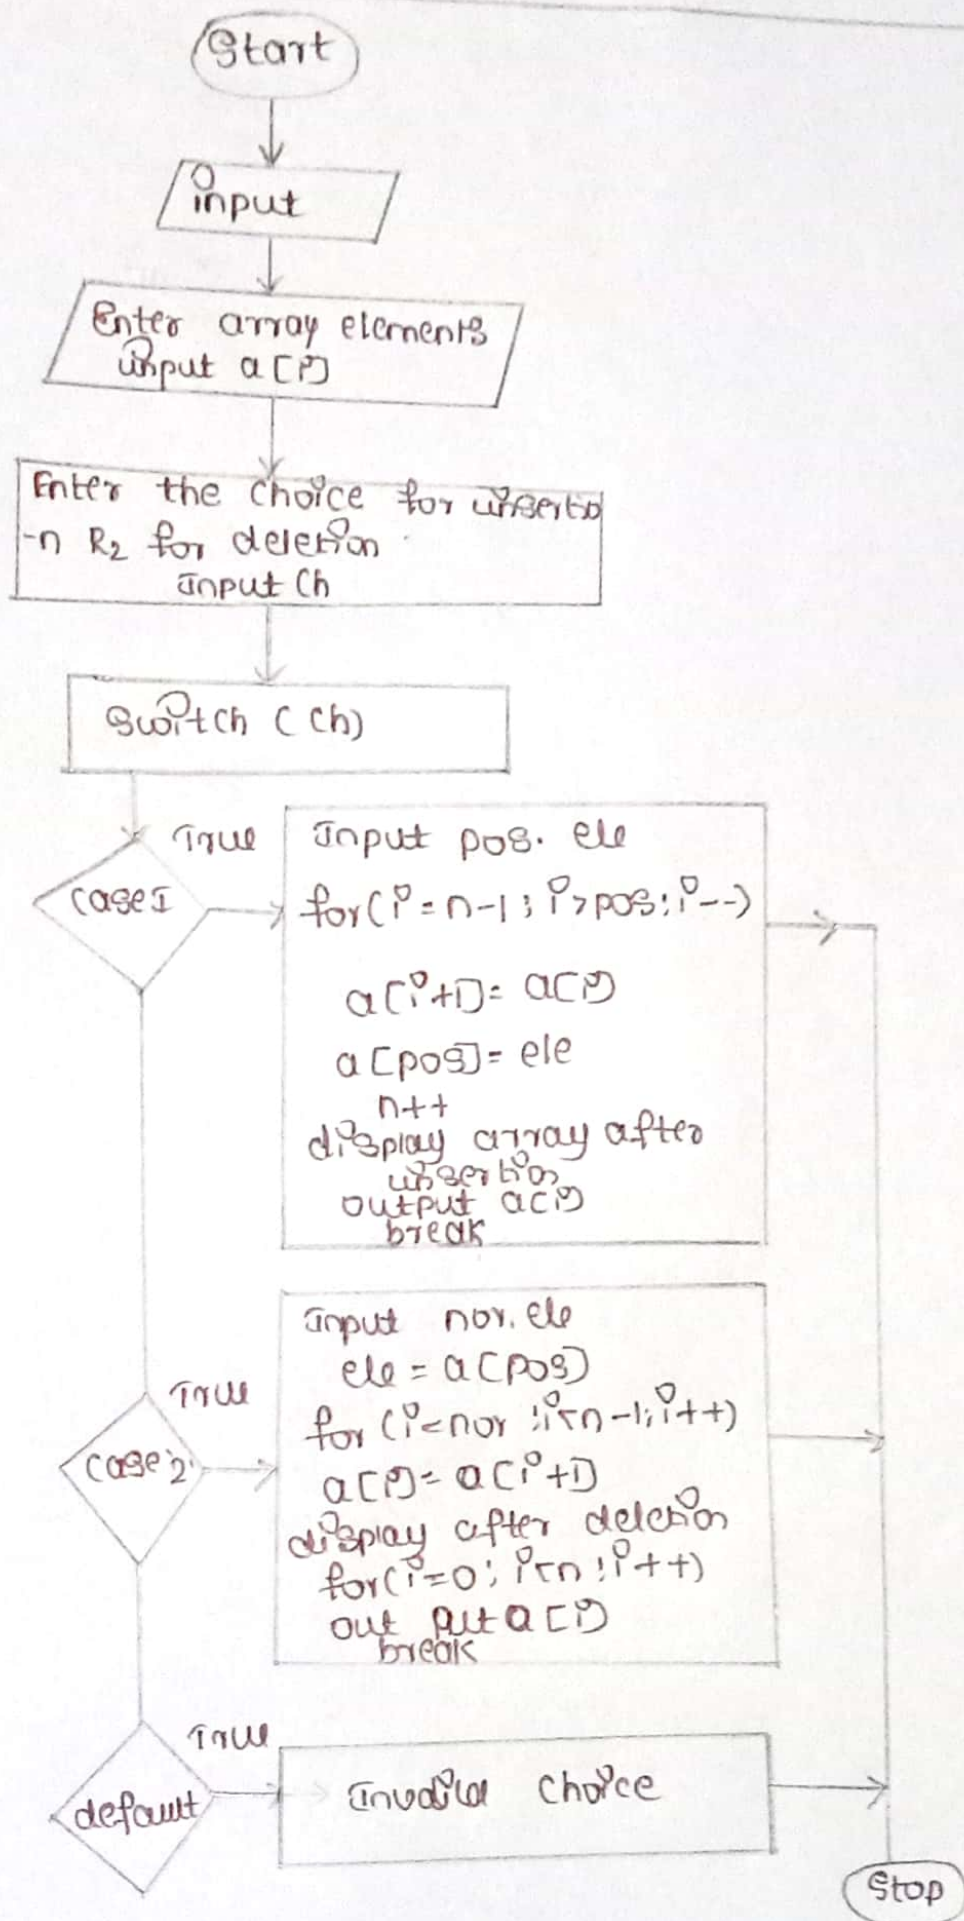 Start
input
Enter array elements
input a[i]
Enter the choice for insertio
-n R2 for deletion
Input Ch
Switch (Ch)
True
case 1
Input pos. ele
for(i=n-1; i>pos; i--)
a[i+1]= a[i]
a[pos]= ele
n++
display array after
insertion
output a[i]
break
True
case 2
Input nor. ele
ele = a[pos]
for (i=nor; i<n-1; i++)
a[i]= a[i+1]
display after deletion
for(i=0; i<n; i++)
out put a[i]
break
True
default
choice
Stop